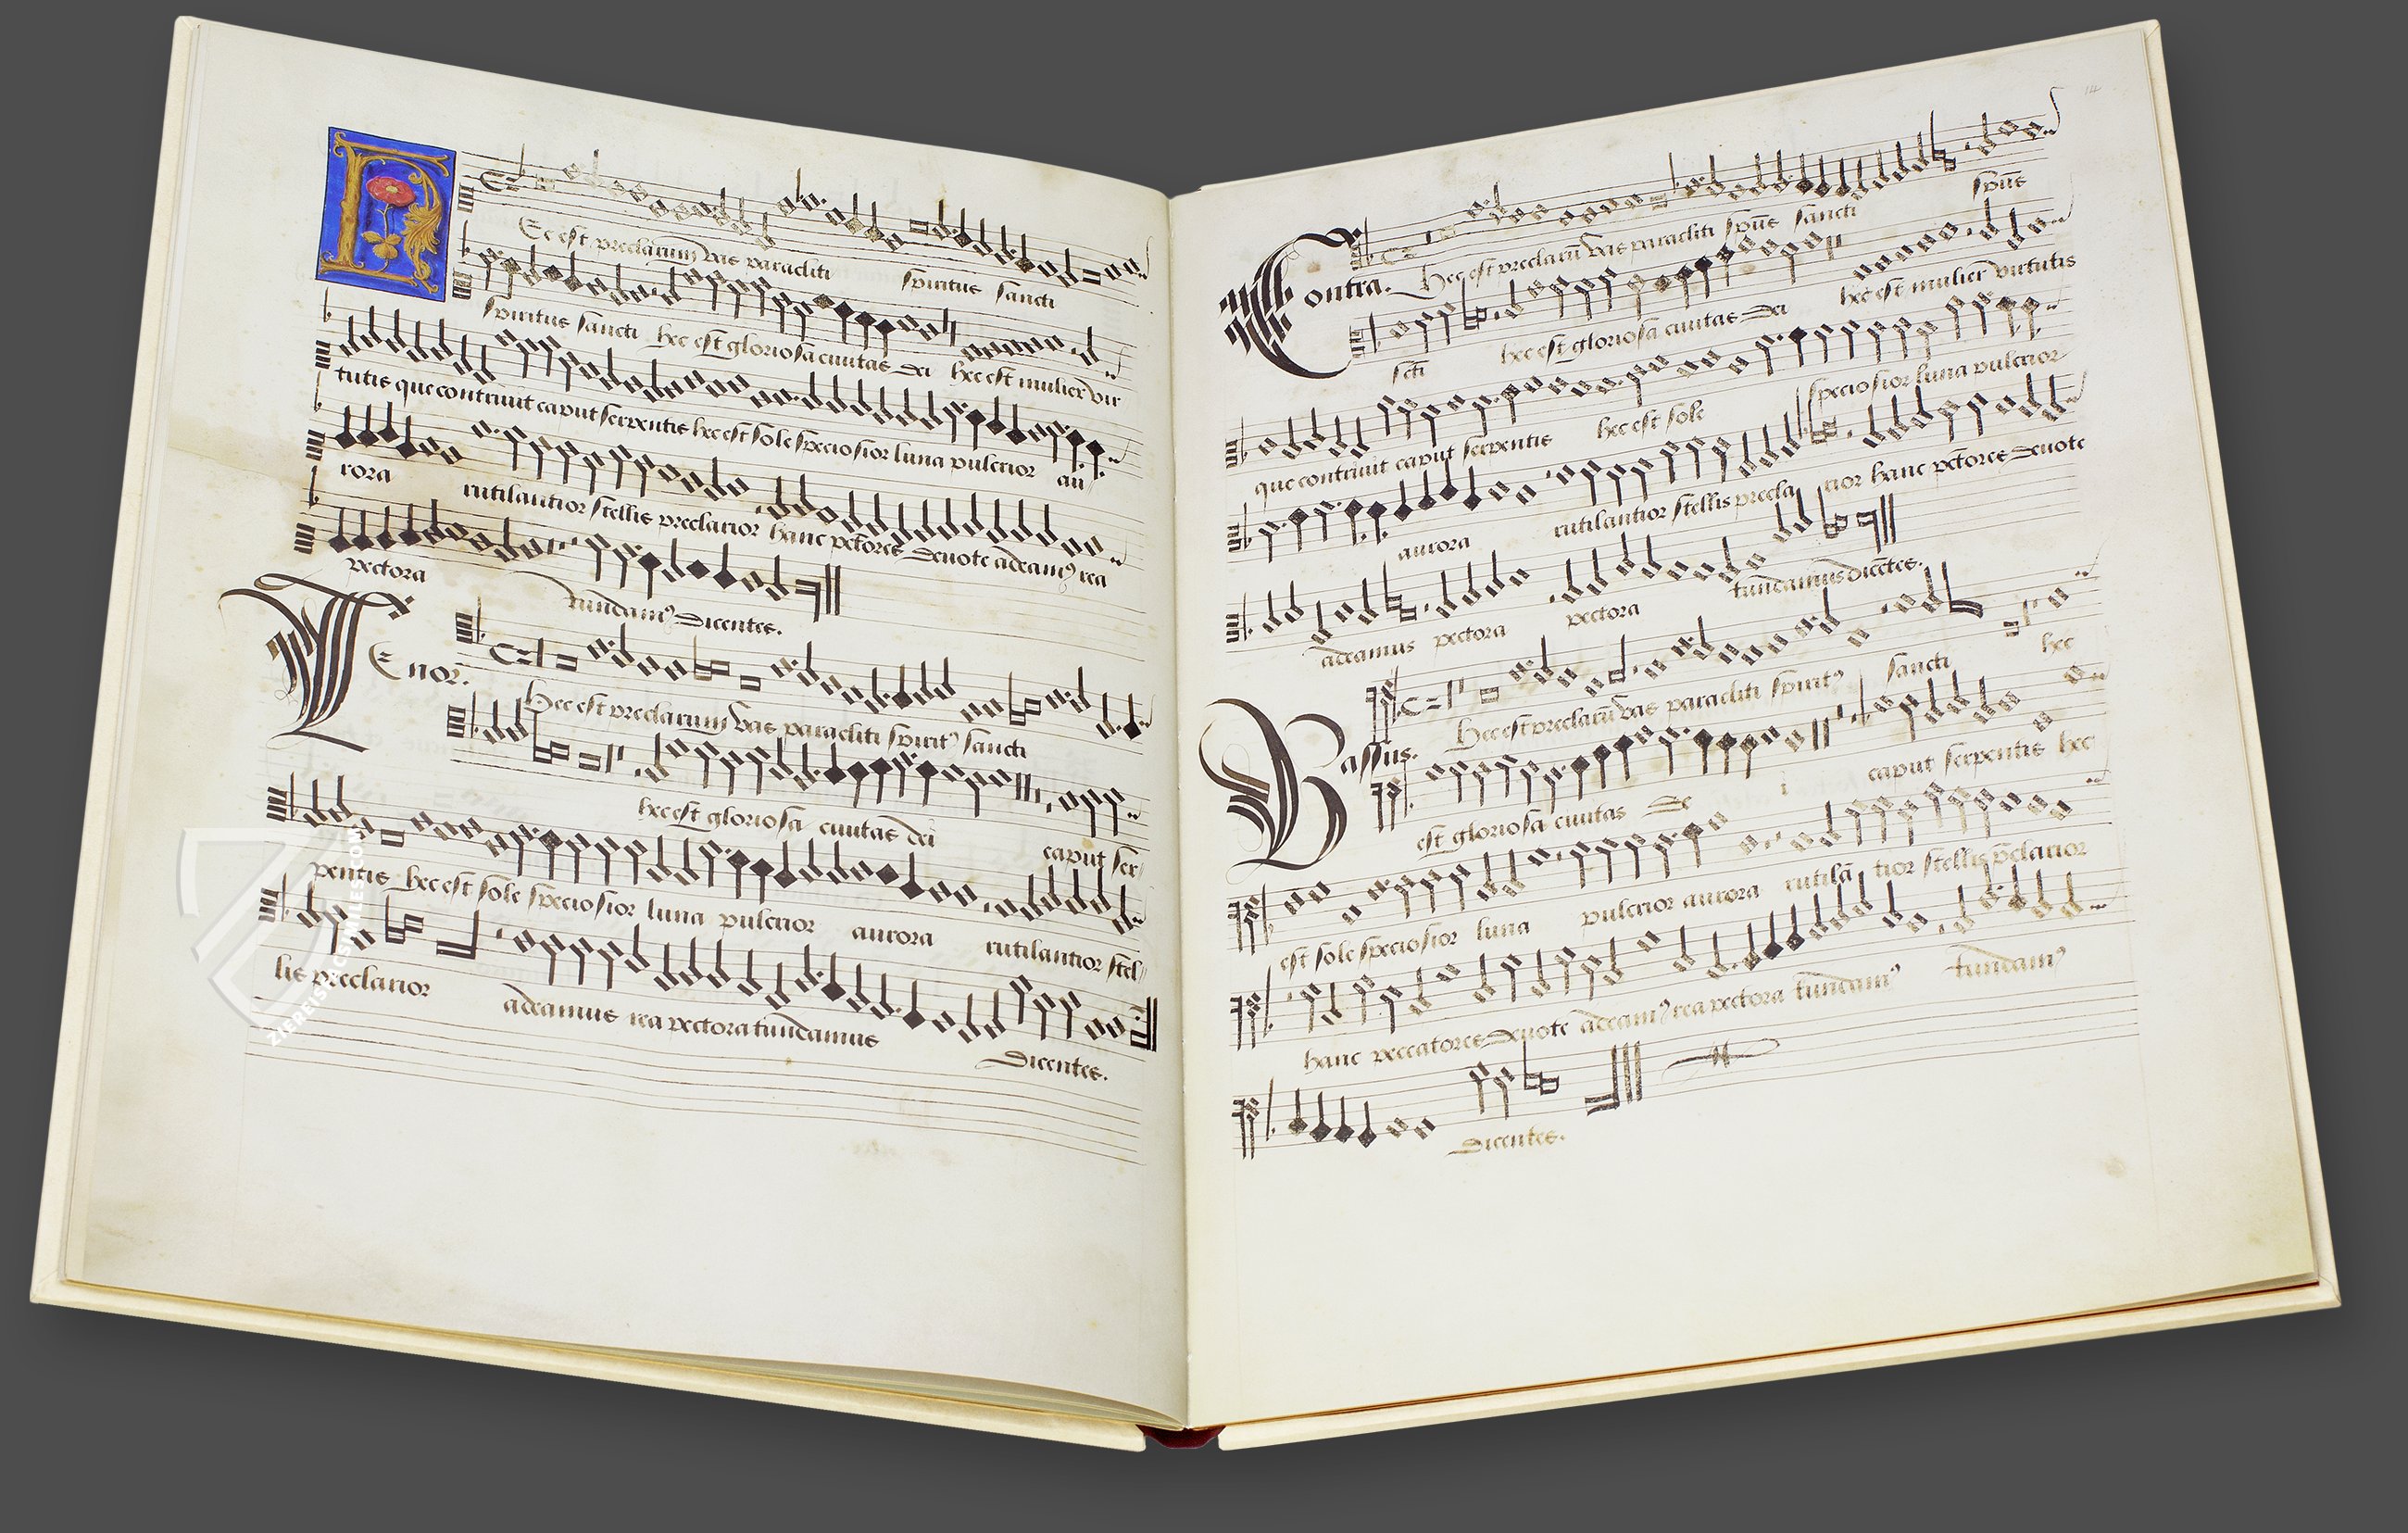 Hec est preclarum vas paracliti spiritus sancti
spiritus sancti hec est gloriosa ciuitas dei hec est mulier vir
tutis que contriuit caput serpentis hec est sole speciosior luna pulcrior au
rora rutilantior stellis preclarior hanc pctores deuote adeamꝰ rea
pectora tundamꝰ Dicentes.
Tenor.
Hec est preclarum vas paracliti spiritꝰ sancti
hec est gloriosa ciuitas dei caput ser
pentis hec est sole speciosior luna pulcrior aurora rutilantior stel
lis preclarior adeamus rea pectora tundamus
Dicentes.
ZIEREIS FACSIMILES.COM
14
Contra. Hec est preclarū vas paracliti spūs sancti spūs
scti hec est gloriosa ciuitas dei hec est mulier virtutis
que contriuit caput serpentis hec est sole speciosior luna pulcrior
aurora rutilantior stellis precla rior hanc pctores deuote
adeamus pectora pectora tundamus dicētes.
Bassus. Hec est preclarū vas paracliti spiritꝰ sancti hec
est gloriosa ciuitas de i caput serpentis hec
est sole speciosior luna pulcrior aurora rutilā tior stellis p̄clarior
hanc peccatores deuote adeamꝰ rea pectora tundamꝰ tundamꝰ
Dicentes.